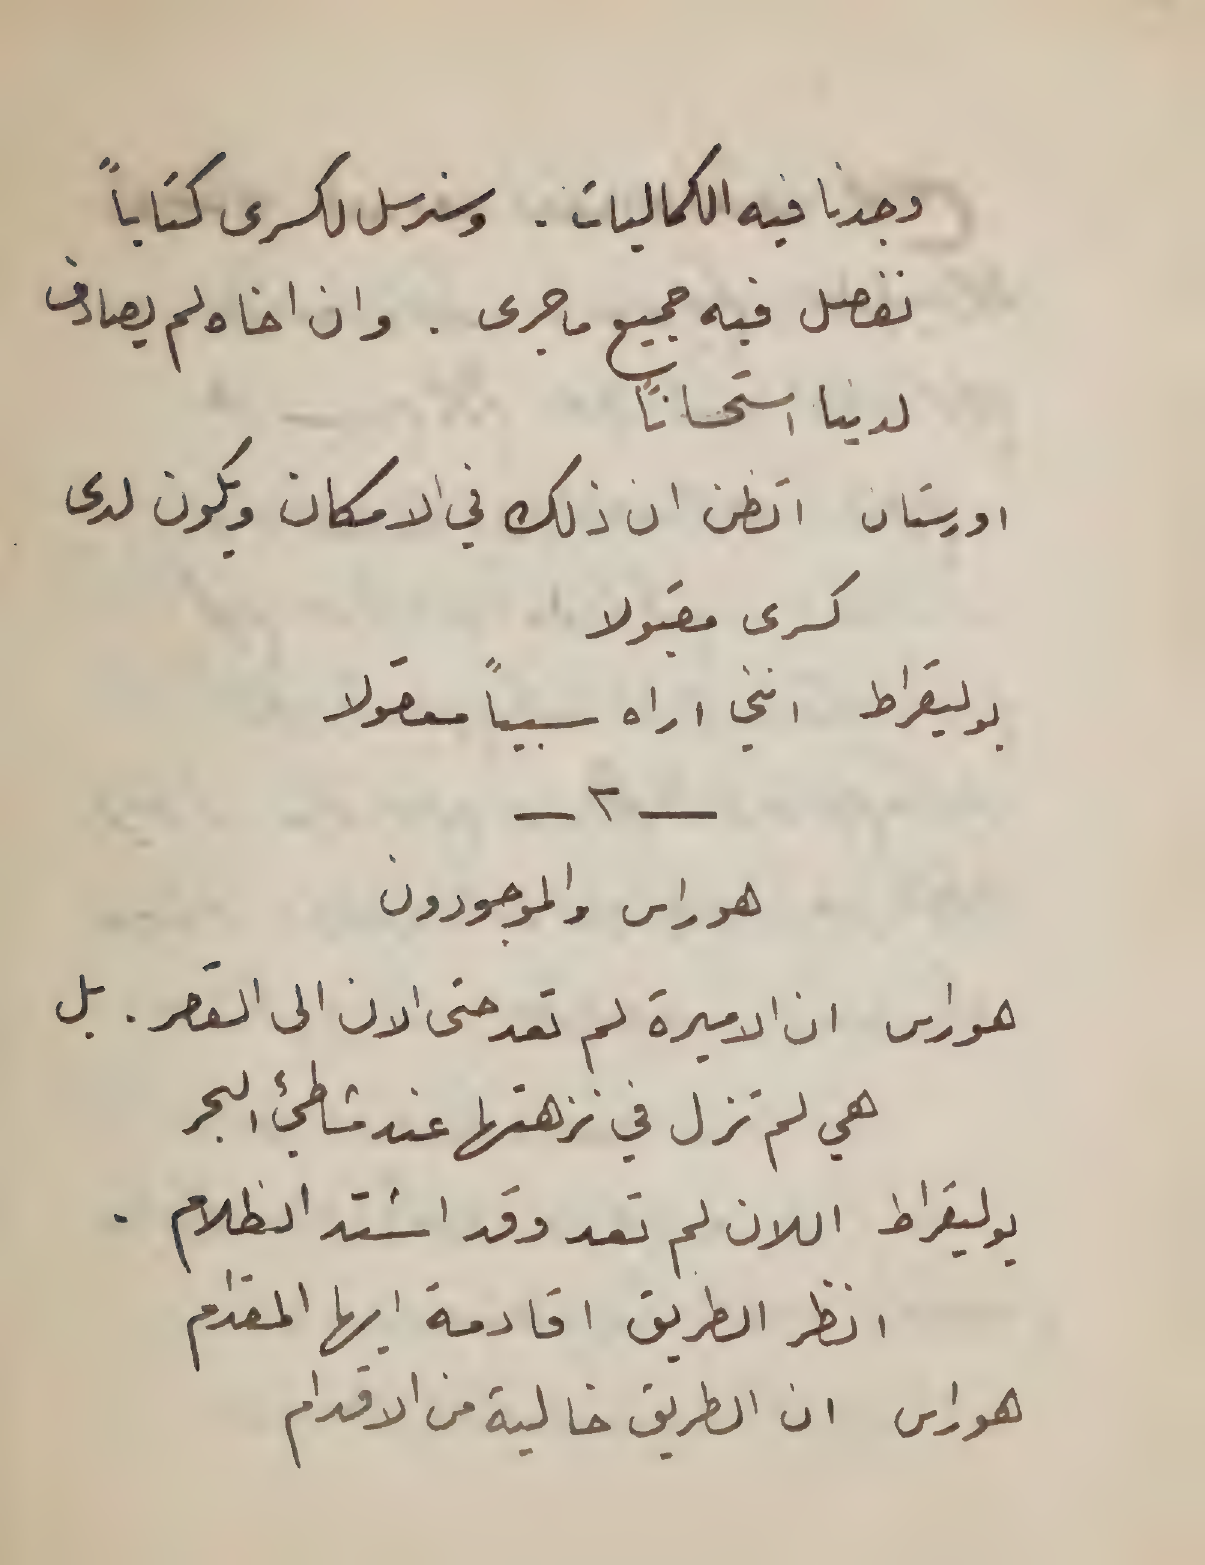 وجدنا فيه الكماليات . وسنرسل لكسرى كتاباً
نفصل فيه جميع ماجرى . وان اخاه لم يصادف
لدينا استحساناً
اورستان اتظن ان ذلك في الامكان ويكون لدى
كسرى مقبولا
بوليقراط انني اراه سبباً معقولا
— ٢ —
هوراس والموجودون
هوراس ان الاميرة لم تعد حتى الان الى القصر . بل
هي لم تزل في نزهتها عند شاطئ البحر
بوليقراط اللان لم تعد وقد اشتد الظلام .
انظر الطريق اقادمة ايها المقدام
هوراس ان الطريق خالية من الاقدام